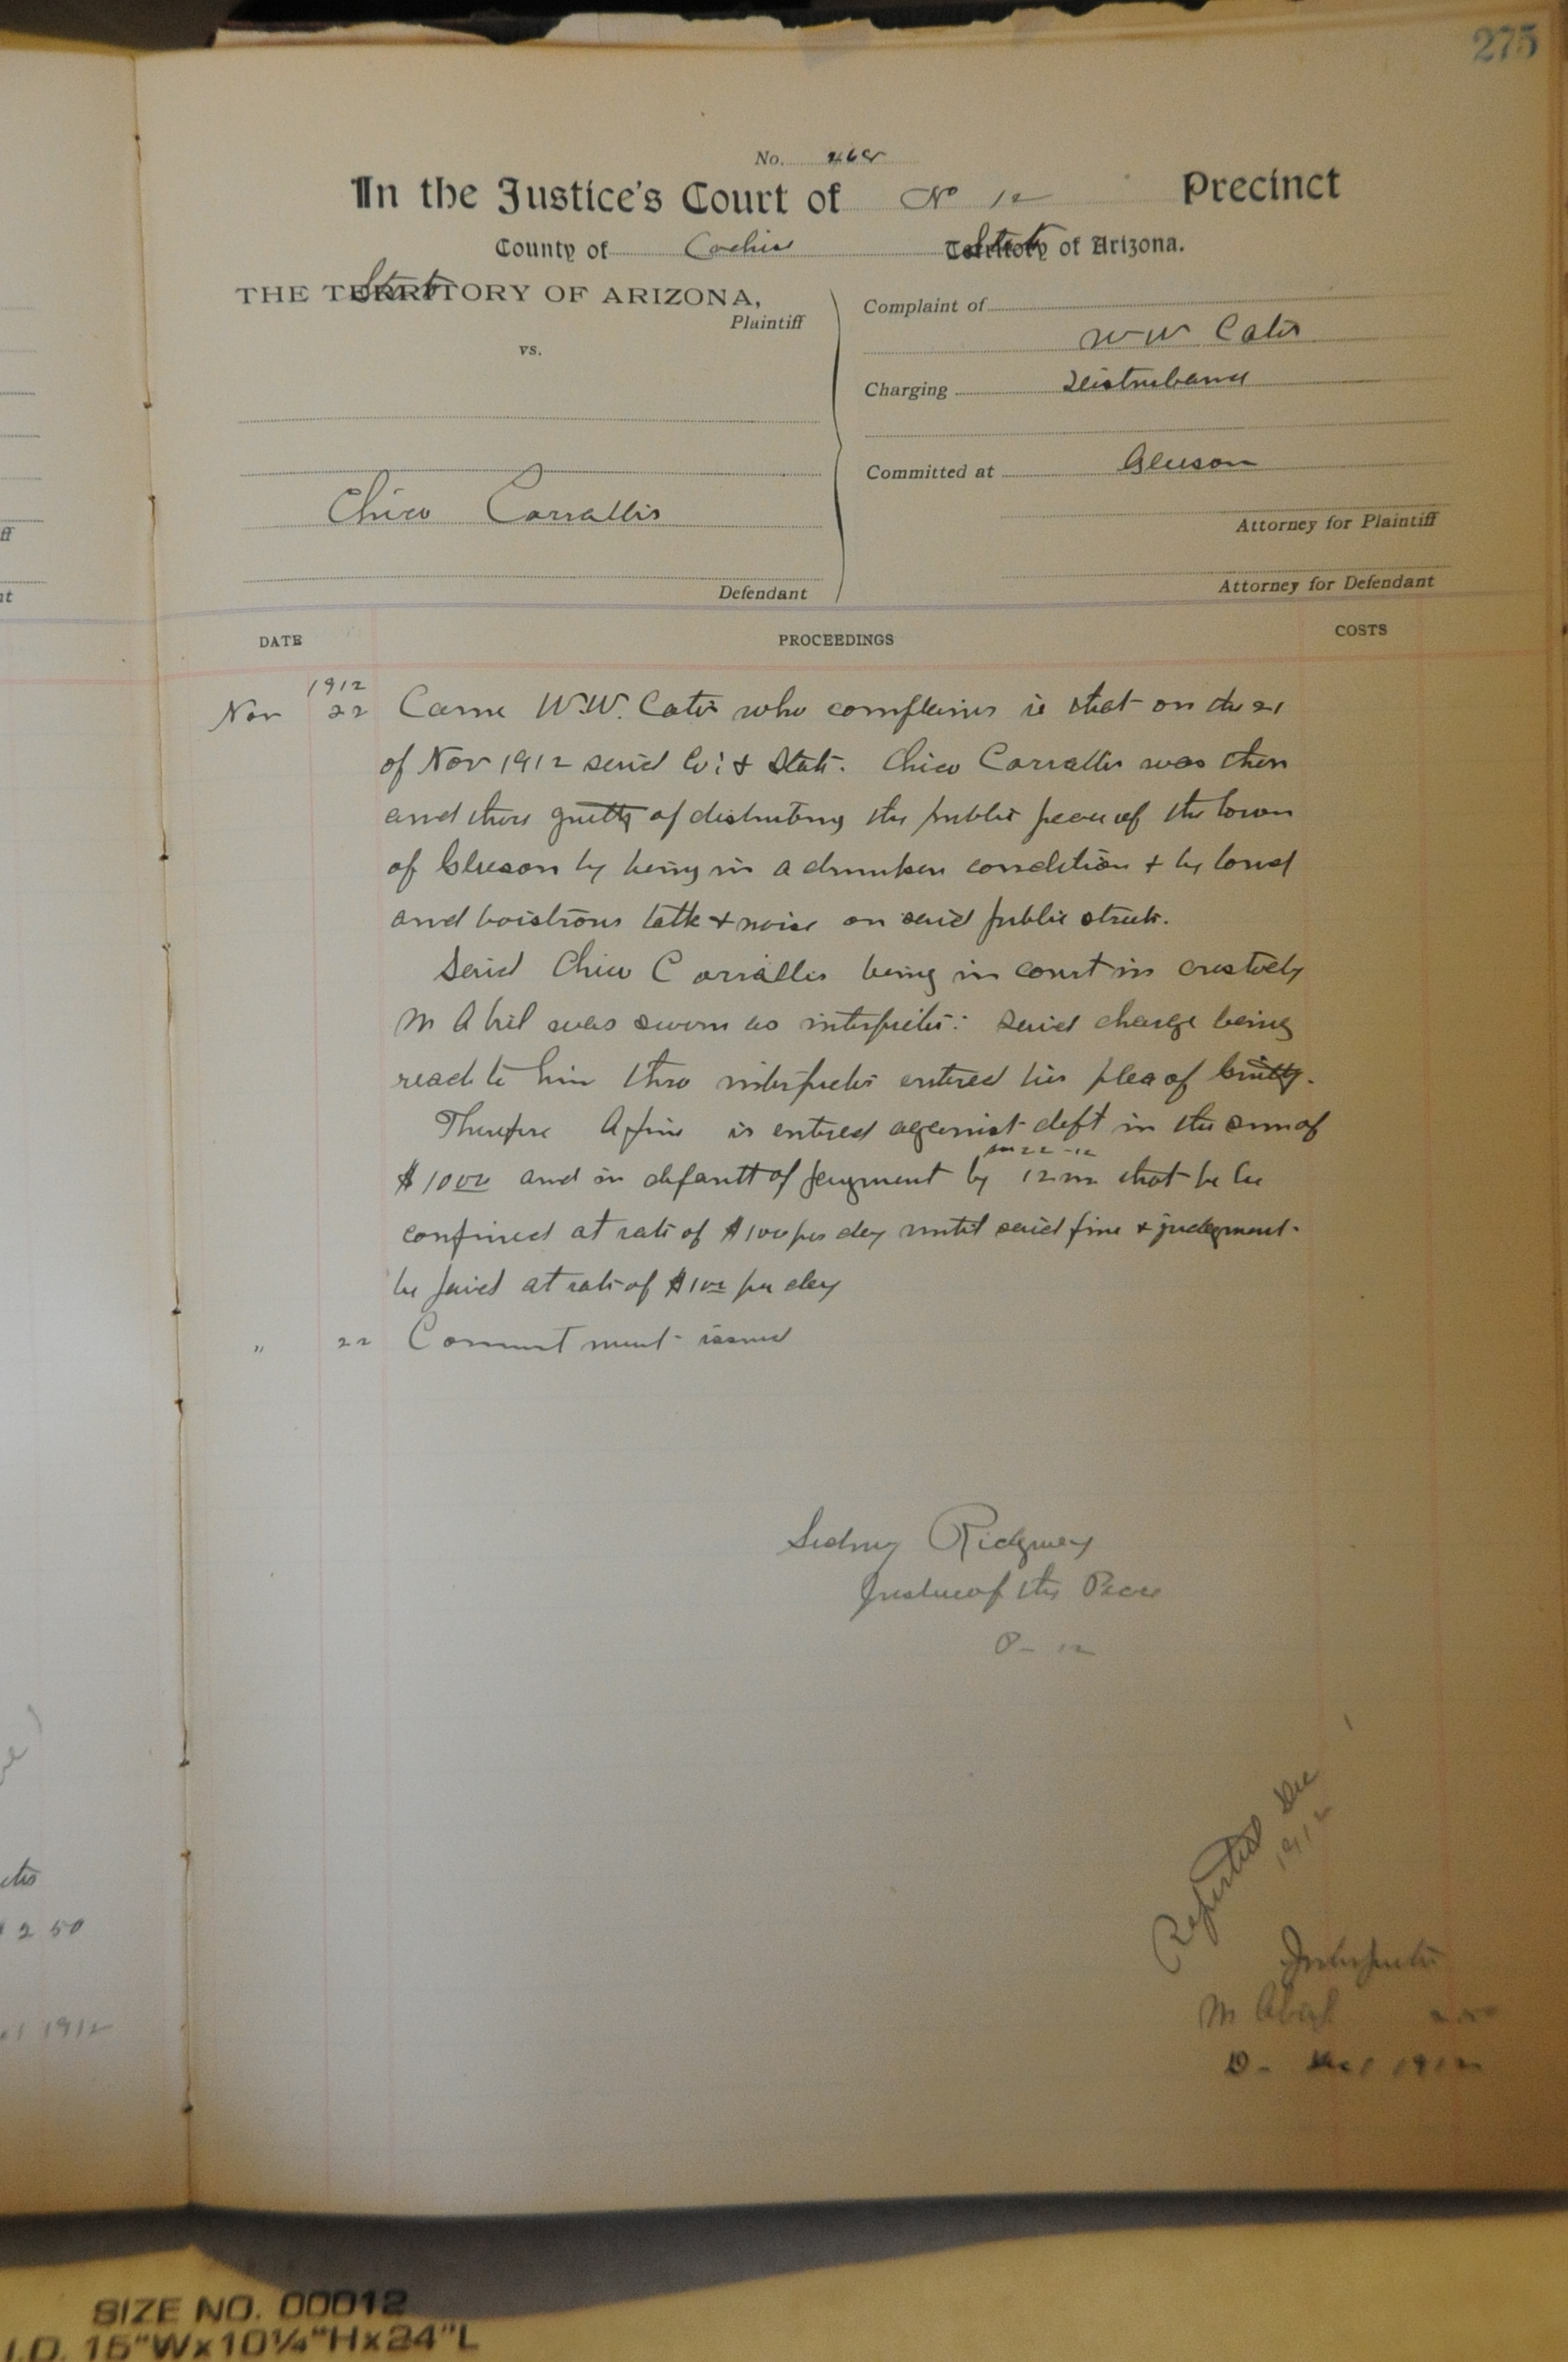 275
No. 268
In the Justice's Court of No 12 Precinct
County of Cochise State of Arizona.
THE State OF ARIZONA,
Plaintiff
vs.
Chico Corrallis
Defendant
Complaint of
W W Cates
Charging Disturbance
Committed at Gleeson
Attorney for Plaintiff
Attorney for Defendant
DATE PROCEEDINGS COSTS
1912
Nov 22 Came W.W. Cates who complains is that on the 21
of Nov 1912 said Co: & State. Chico Corrallis was then
and there guilty of disturbing the public peace of the town
of Gleeson by being in a drunken condition & by loud
and boistrous talk & noise on said public streets.
Said Chico Corrallis being in court in custody
M Abril was sworn as interpreter: said charge being
read to him thro interpreter entered his plea of Guilty.
Therefore A fine is entered against deft in the sum of
22-12
$10 00 and in default of payment by 12 m that he be
confined at rate of $1 00 per day until said fine & judgment
be paid at rate of $1 00 per day
" 22 Commitment issued
Sidney Ridgway
Justice of the Peace
P- 12
Reported Dec
1912
Interpreter
M Abril
D- 1 1912
2 50
1912
ff
nt
SIZE NO. 00012
I.D. 15"Wx10¼"Hx24"L